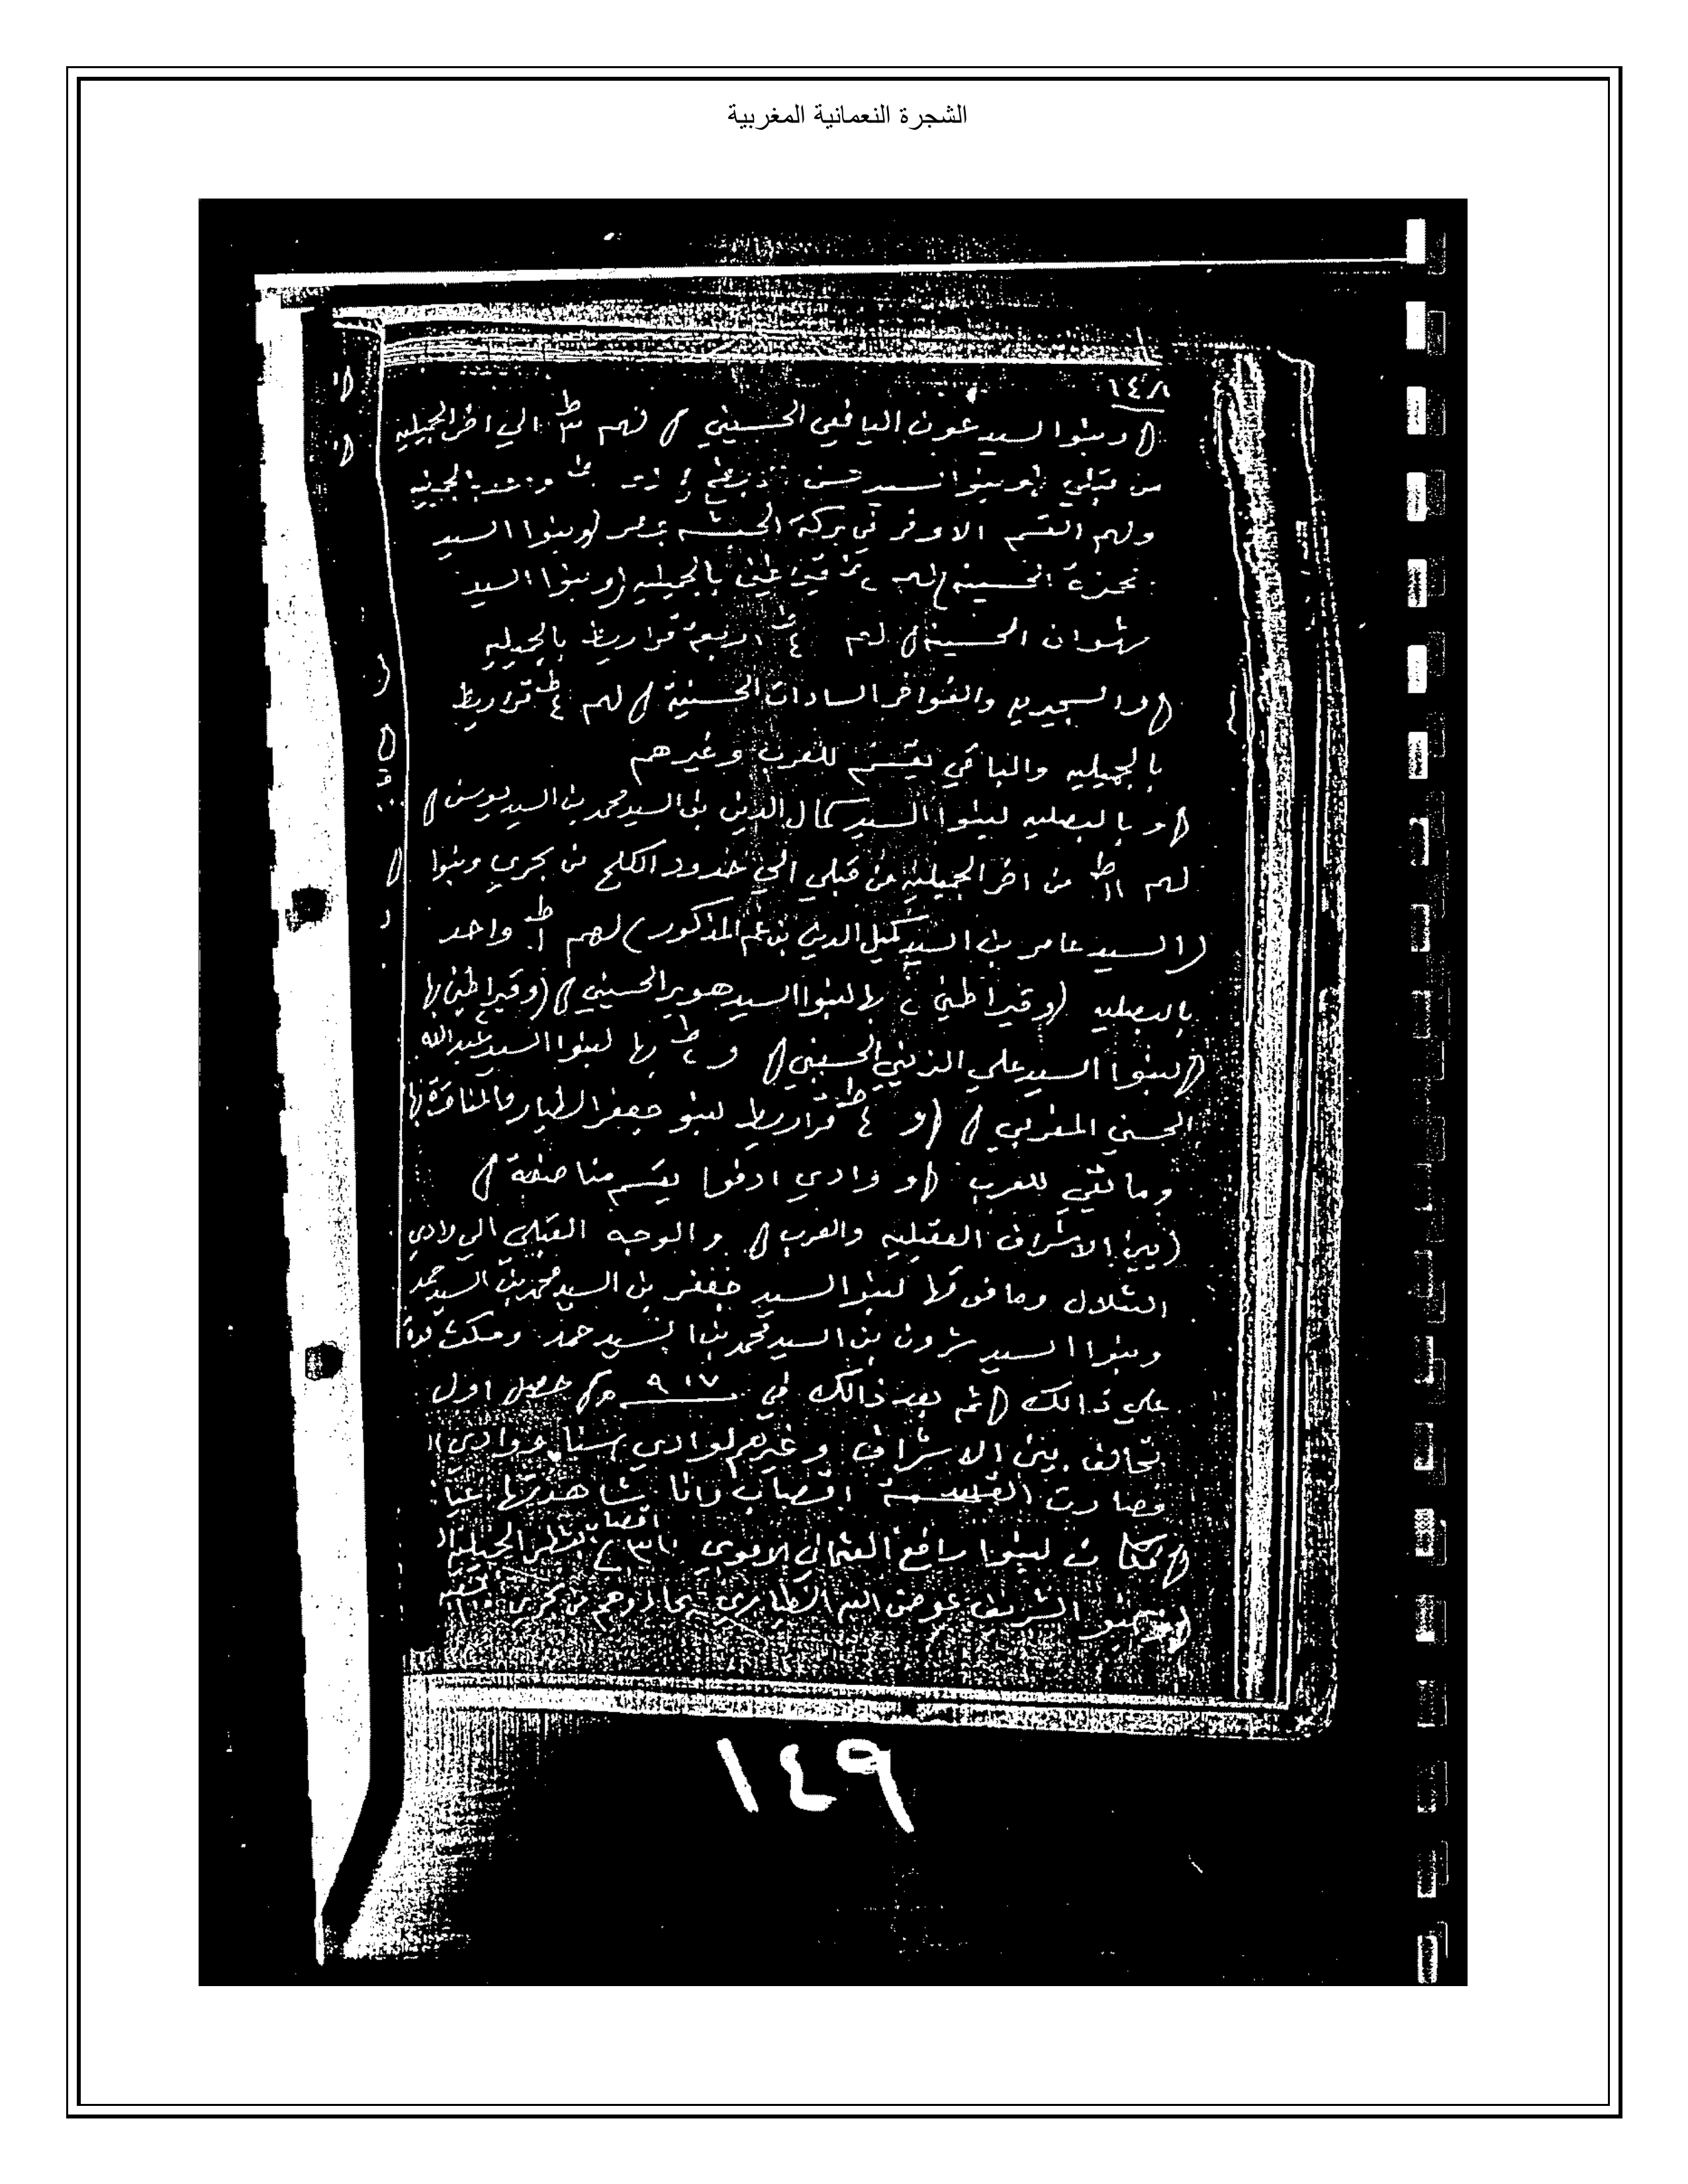 الشجرة النعمانية المغربية
١٤٨
(وبنوا السيد عون اليافعي الحسيني) لهم ٣ ط الي اخر الجميليه
من قبلي
ولهم القسم الاوفر في بركة الحبشه بمصر (وبنوا السيد
حمزة الحسينيه) لهم ٢ ط قيراطين بالجميليه (وبنوا السيد
شهوان الحسينية) لهم ٤ ط اربعة قراريط بالجميليه
والفواخر السادات الحسنية) لهم ٤ ط قراريط
بالجميليه والباقي يقسم للعرب وغيرهم
(وبالبصليه لبنوا السيد كمال الدين بن السيد محمد بن السيد يونس)
لهم ١١ ط من اخر الجميليه من قبلي الي حدود الكلح من بحري وبنوا
(السيد عامر بن السيد كميل الدين بن عم المذكور) لهم ١ ط واحد
بالبصليه (وقيراطين ٢ بها لبنوا السيد هوير الحسيني) (وقيراطين بها
(لبنوا السيد علي الزيني الحسيني) و ٢ ط بها لبنوا السيد عبدالله
الحسني المغربي) (و ٤ ط قراريط لبنو جعفر الطيار بها
وما بقي للعرب (و وادي ادفوا يقسم مناصفة)
(بين الاشراف العقيليه والعرب) والوجه القبلي الي وادي
الشلال وما فوقها لبنوا السيد جعفر بن السيد محمد بن السيد حمد
وبنوا السيد شرون بن السيد محمد بن السيد حمد ومكث
علي ذالك (ثم بعد ذالك في ٩١٧ حصل اول
تحالف بين الاشراف وغيرهم لوادي اسنا ووادي
فصارت القسمة اقصاب وانا شاهدتها
(فكان لبنوا رافع العثماني الاموي اقصاب
الشريف عوض الله الطياري من بحري
١٤٩